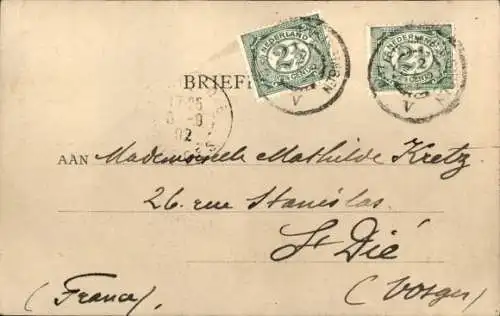 NEDERLAND
2½
CENT
NEDERLAND
2½
CENT
BRIEF
V
V
AAN Mademoiselle Mathilde Kretz
26. rue Stanislas.
St Dié
(France)
(Vosges)